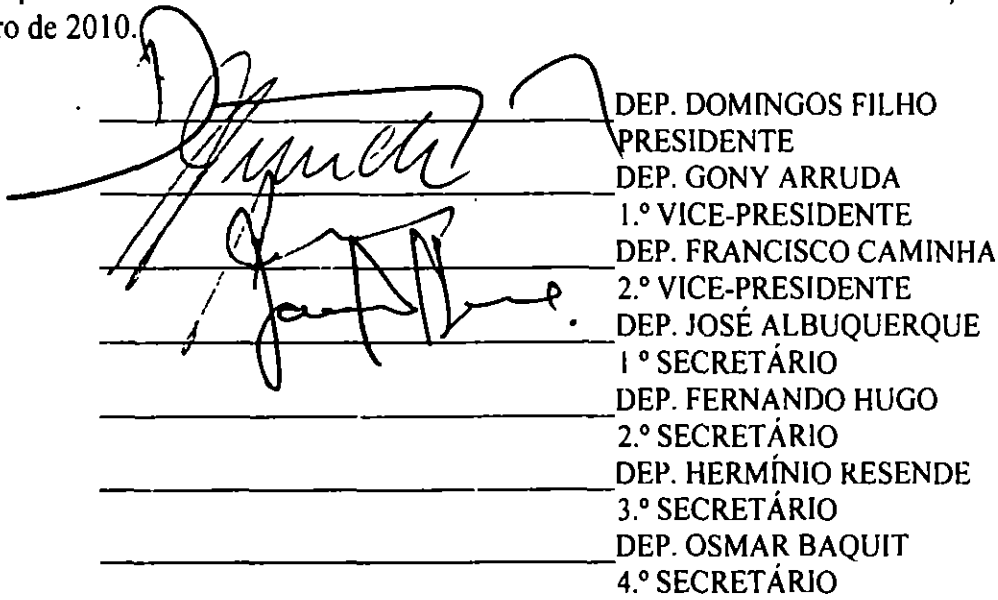 ro de 2010.
DEP. DOMINGOS FILHO
PRESIDENTE
DEP. GONY ARRUDA
1.º VICE-PRESIDENTE
DEP. FRANCISCO CAMINHA
2.º VICE-PRESIDENTE
DEP. JOSÉ ALBUQUERQUE
1 º SECRETÁRIO
DEP. FERNANDO HUGO
2.º SECRETÁRIO
DEP. HERMÍNIO RESENDE
3.º SECRETÁRIO
DEP. OSMAR BAQUIT
4.º SECRETÁRIO